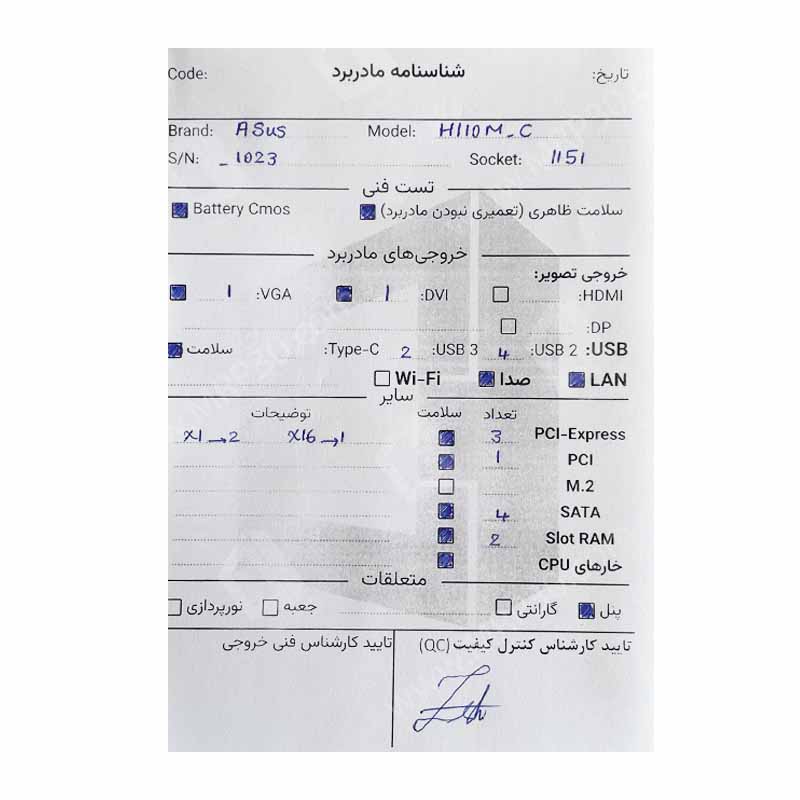 شناسنامه مادربرد
تاریخ:
Code:
Brand: ASUS Model: H110M_C
S/N: _1023 Socket: 1151
تست فنی
سلامت ظاهری (تعمیری نبودن مادربرد) Battery Cmos
خروجی‌های مادربرد
خروجی تصویر:
HDMI: DVI: 1 VGA: 1
DP:
USB: USB 2: 4 USB 3: 2 Type-C: سلامت
LAN صدا Wi-Fi
سایر
تعداد سلامت توضیحات
PCI-Express 3 X16→1 X1→2
PCI 1
M.2
SATA 4
Slot RAM 2
خارهای CPU
متعلقات
پنل گارانتی جعبه نورپردازی
تایید کارشناس کنترل کیفیت (QC)
تایید کارشناس فنی خروجی